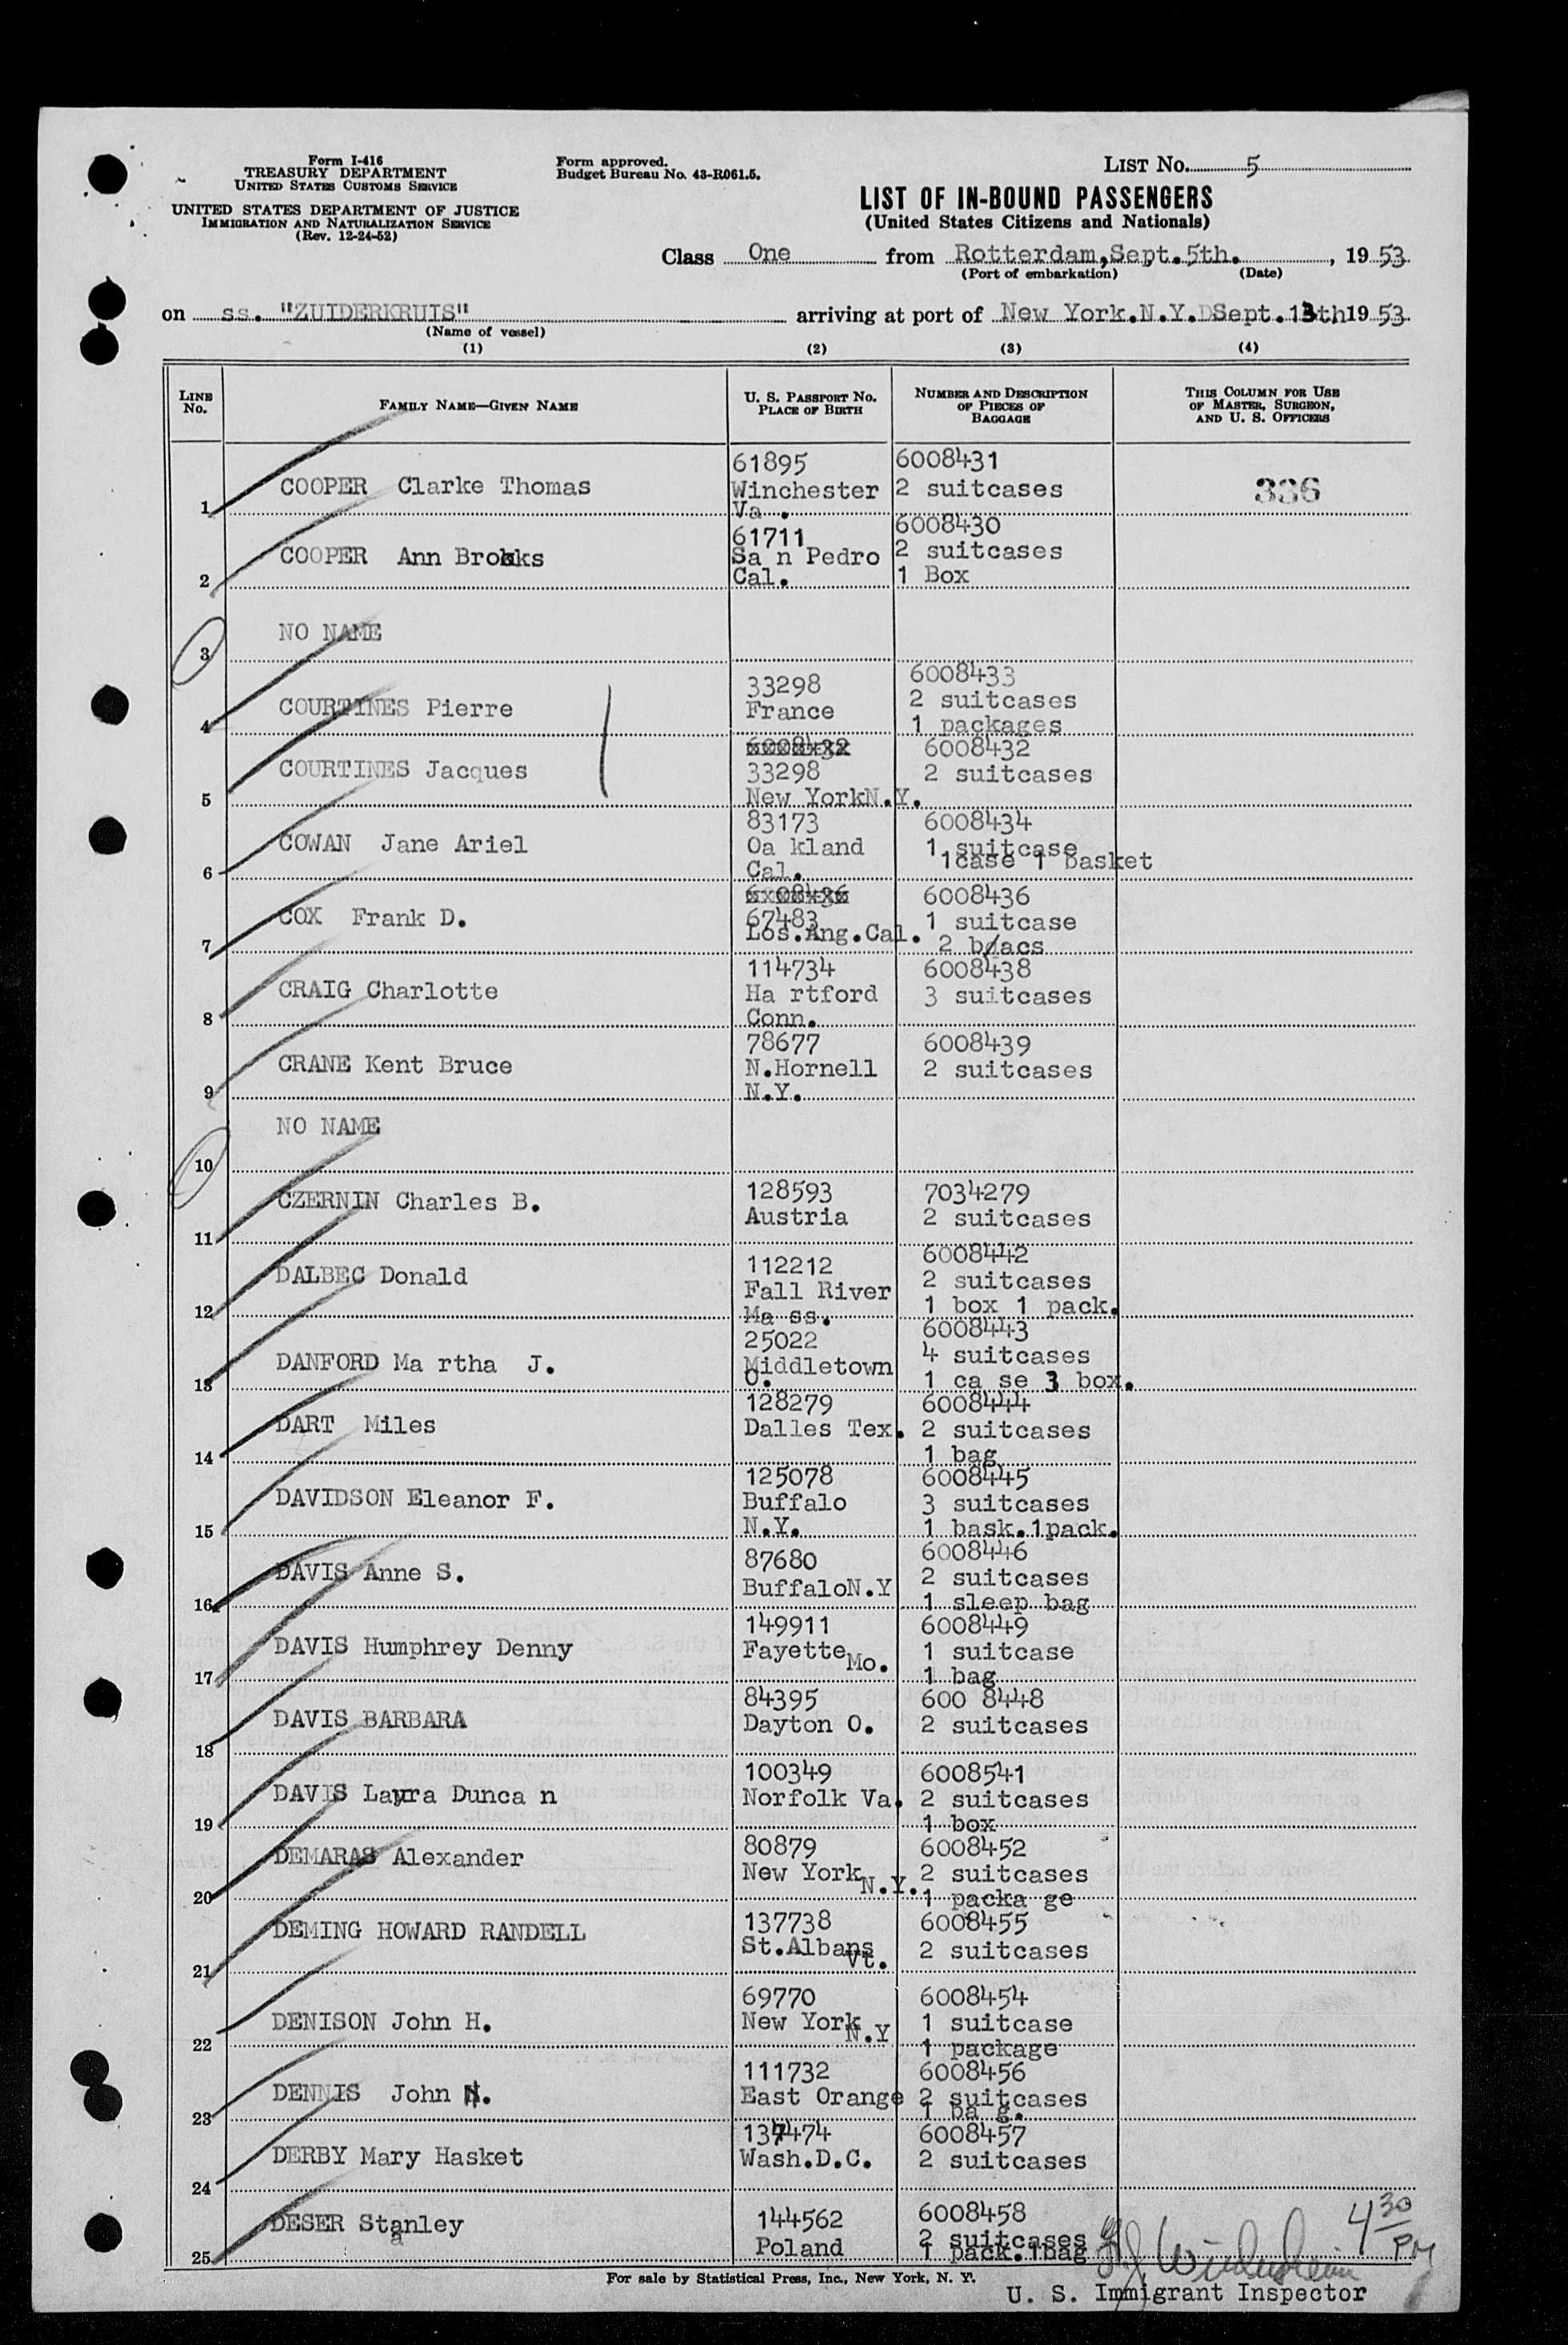 Form I-416
TREASURY DEPARTMENT
UNITED STATES CUSTOMS SERVICE
UNITED STATES DEPARTMENT OF JUSTICE
IMMIGRATION AND NATURALIZATION SERVICE
(Rev. 12-24-52)
Form approved.
Budget Bureau No. 43-R061.5.
LIST No. 5
LIST OF IN-BOUND PASSENGERS
(United States Citizens and Nationals)
Class One from Rotterdam, Sept. 5th. , 19 53
(Port of embarkation) (Date)
on ss. "ZUIDERKRUIS" arriving at port of New York.N.Y. Sept.13th 19 53
(Name of vessel)
(1) (2) (3) (4)
LINE No. FAMILY NAME—GIVEN NAME U. S. PASSPORT NO. PLACE OF BIRTH NUMBER AND DESCRIPTION OF PIECES OF BAGGAGE THIS COLUMN FOR USE OF MASTER, SURGEON, AND U. S. OFFICERS
61895 6008431
1 COOPER Clarke Thomas Winchester 2 suitcases 336
Va.
61711 6008430
2 COOPER Ann Brooks Sa n Pedro 2 suitcases
Cal. 1 Box
3 NO NAME
33298 6008433
4 COURTINES Pierre France 2 suitcases
1 packages
6008432 6008432
5 COURTINES Jacques 33298 2 suitcases
New YorkN.Y.
83173 6008434
6 COWAN Jane Ariel Oa kland 1 suitcase
Cal. 1case 1 basket
6008436 6008436
7 COX Frank D. 67483 1 suitcase
Los.Ang.Cal. 2 b/acs
114734 6008438
8 CRAIG Charlotte Ha rtford 3 suitcases
Conn.
78677 6008439
9 CRANE Kent Bruce N.Hornell 2 suitcases
N.Y.
10 NO NAME
128593 7034279
11 CZERNIN Charles B. Austria 2 suitcases
112212 6008442
12 DALBEC Donald Fall River 2 suitcases
Ma ss. 1 box 1 pack.
25022 6008443
13 DANFORD Ma rtha J. Middletown 4 suitcases
O. 1 ca se 3 box.
128279 6008444
14 DART Miles Dalles Tex. 2 suitcases
1 bag
125078 6008445
15 DAVIDSON Eleanor F. Buffalo 3 suitcases
N.Y. 1 bask.1pack.
87680 6008446
16 DAVIS Anne S. BuffaloN.Y 2 suitcases
1 sleep bag
149911 6008449
17 DAVIS Humphrey Denny Fayette Mo. 1 suitcase
1 bag
84395 600 8448
18 DAVIS BARBARA Dayton O. 2 suitcases
100349 6008541
19 DAVIS Dunca n Norfolk Va. 2 suitcases
1 box
80879 6008452
20 DEMARAS Alexander New York N.Y. 2 suitcases
1 packa ge
137738 6008455
21 DEMING HOWARD RANDELL St.Albans Vt. 2 suitcases
69770 6008454
22 DENISON John H. New York N.Y 1 suitcase
1 package
111732 6008456
23 DENNIS John East Orange 2 suitcases
1 ba g.
137474 6008457
24 DERBY Mary Hasket Wash.D.C. 2 suitcases
144562 6008458
25 DESER Stanley Poland 2 suitcases
a 1 pack.1bag
4 30 PM
For sale by Statistical Press, Inc., New York, N. Y.
U. S. Immigrant Inspector